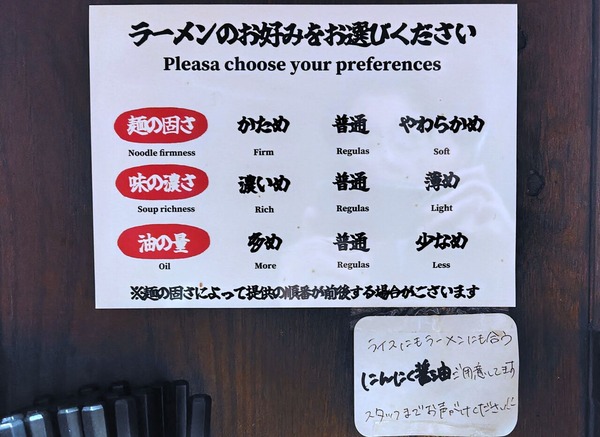 ラーメンのお好みをお選びください
Pleasa choose your preferences
麺の固さ かため 普通 やわらかめ
Noodle firmness Firm Regulas Soft
味の濃さ 濃いめ 普通 薄め
Soup richness Rich Regulas Light
油の量 多め 普通 少なめ
Oil More Regulas Less
※麺の固さによって提供の順番が前後する場合がございます
ライスにもラーメンにも合う
にんにく醤油ご用意してます
スタッフまでお声がけください